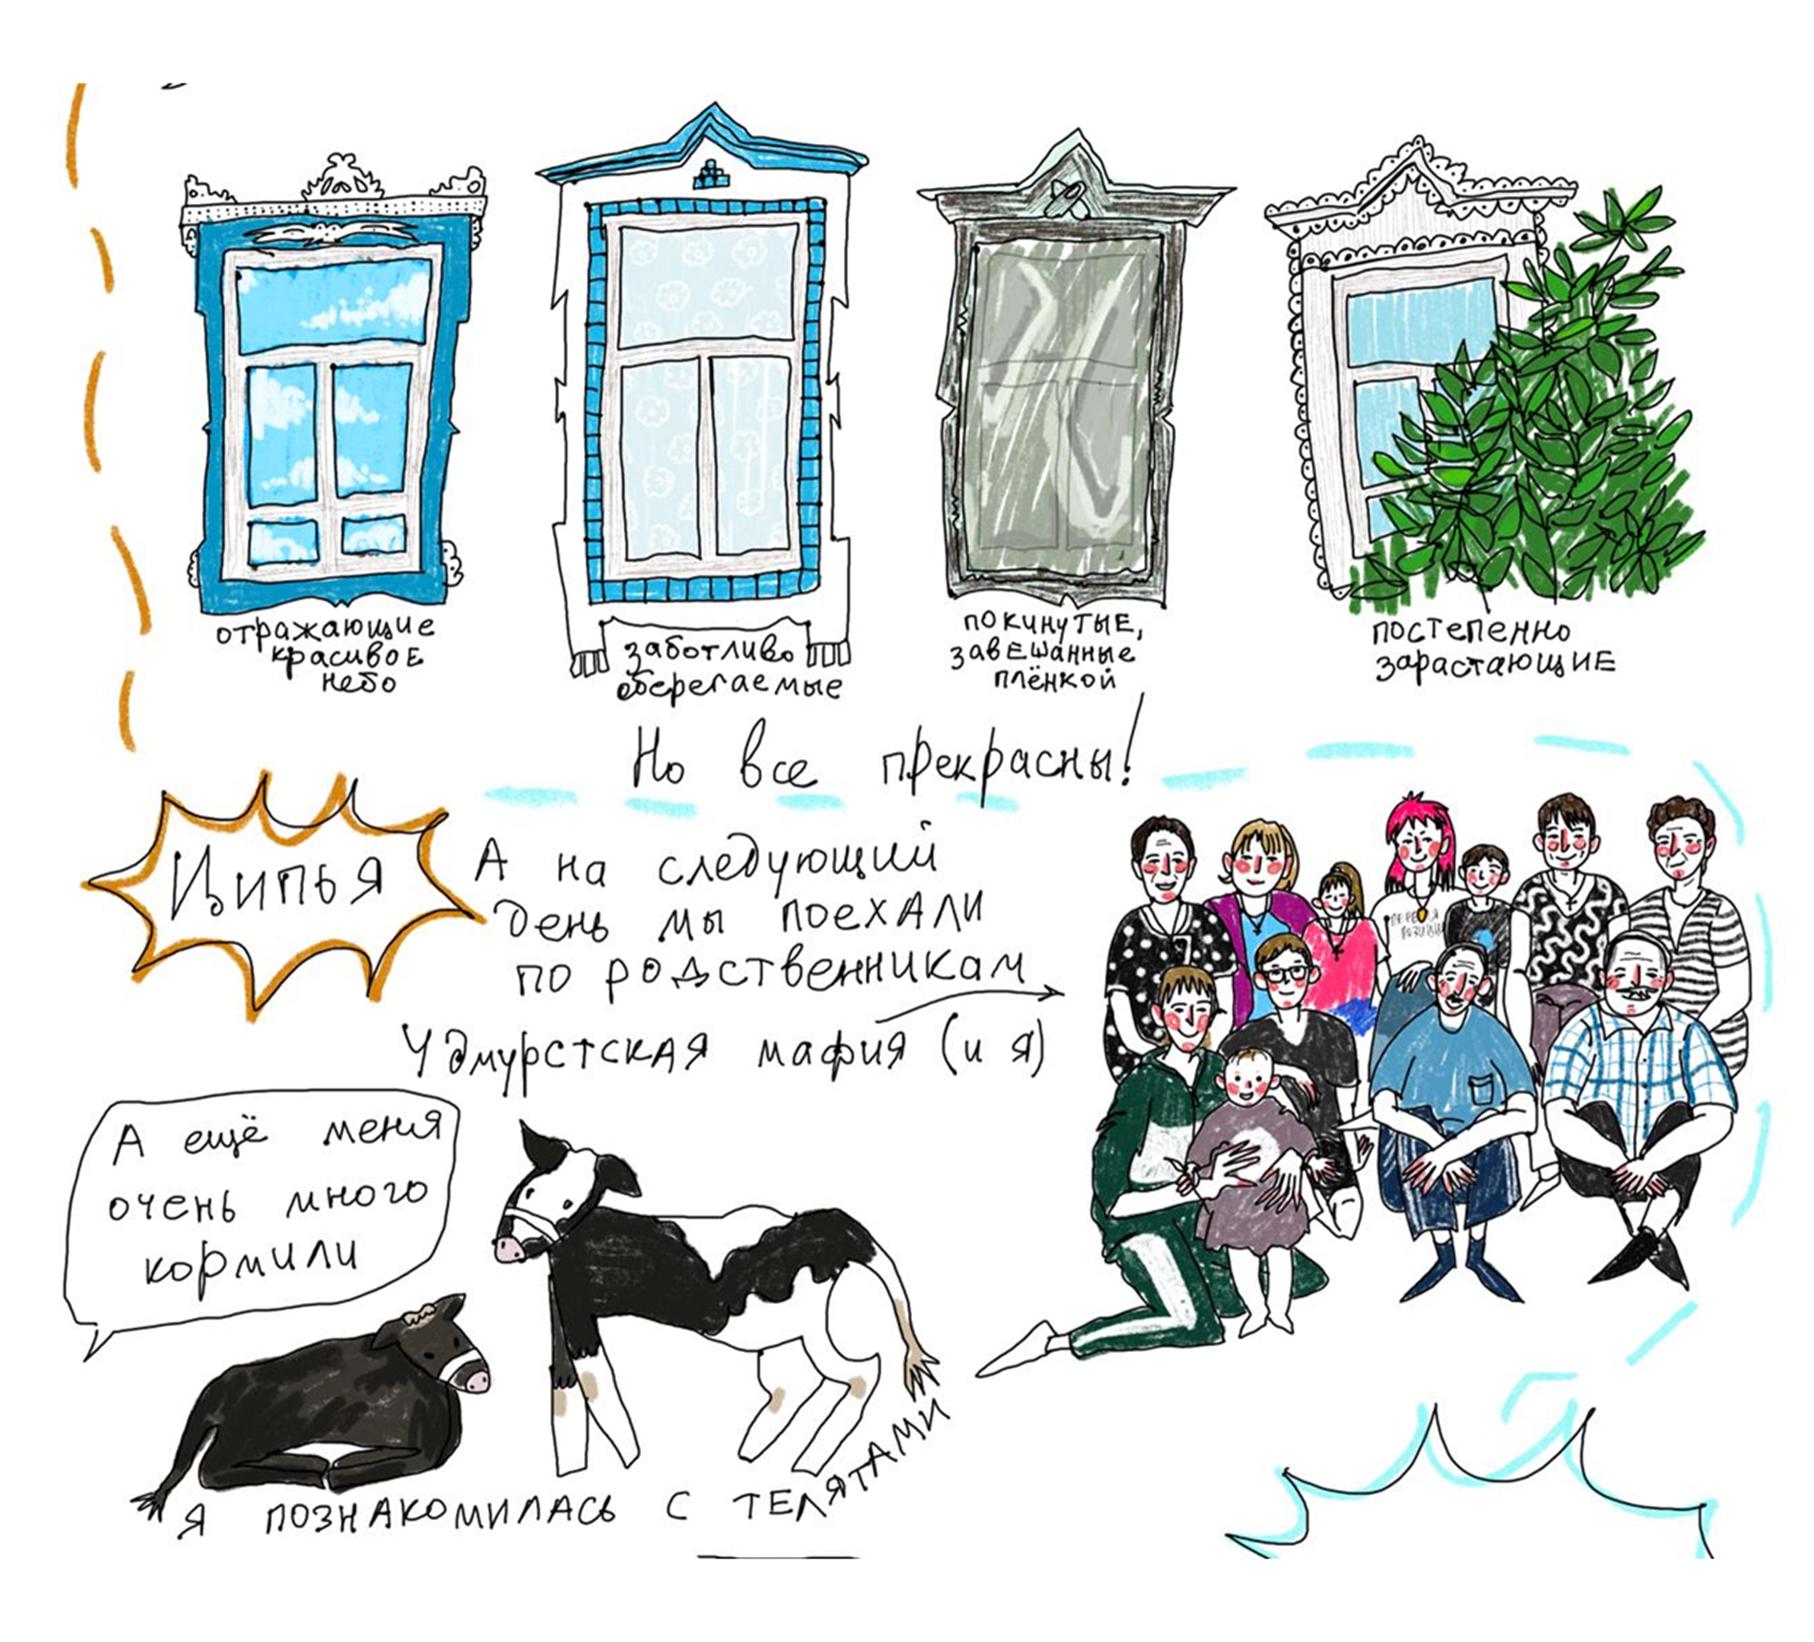 отражающие
красивое
небо
заботливо
оберегаемые
покинутые,
завешанные
плёнкой
постепенно
зарастающие
Но все прекрасны!
Ципья
А на следующий
день мы поехали
по родственникам
Удмурстская мафия (и я)
А ещё меня
очень много
кормили
Я познакомилась с телятами